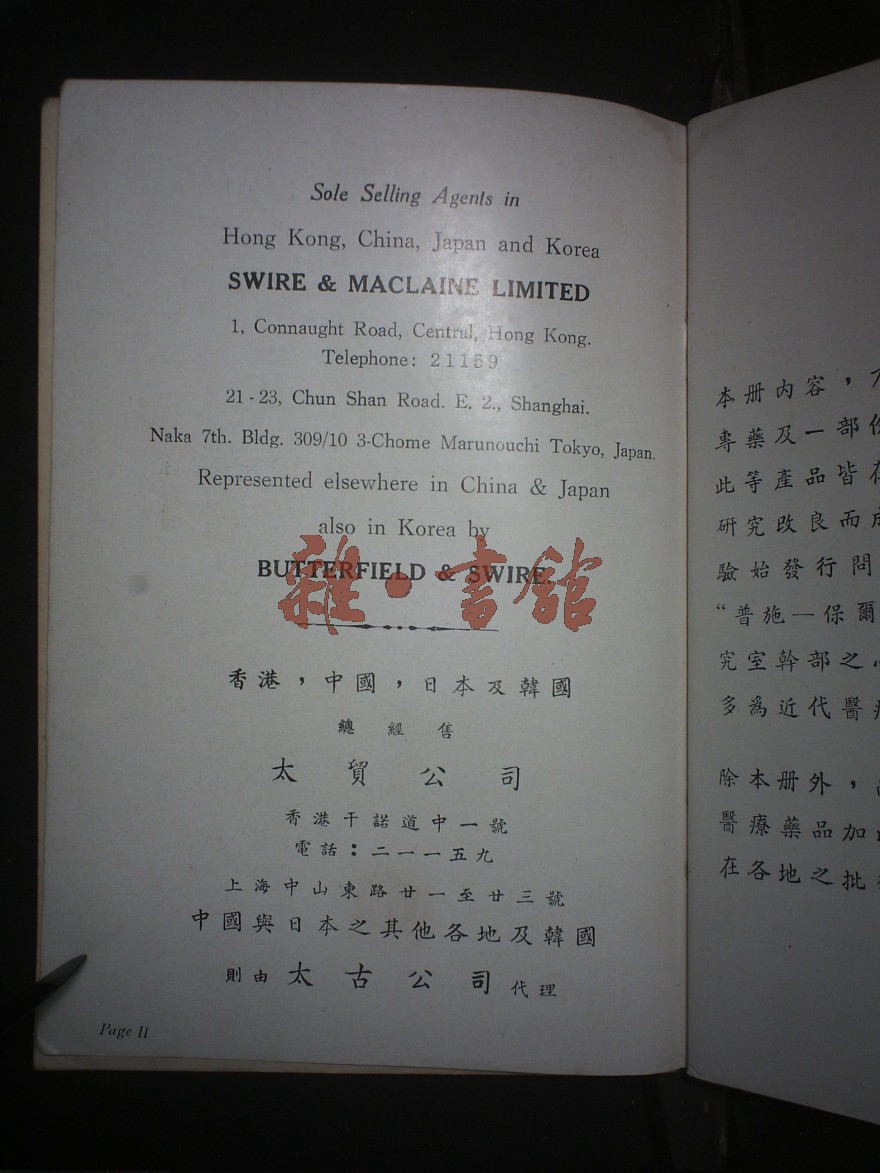 Sole Selling Agents in
Hong Kong, China, Japan and Korea
SWIRE & MACLAINE LIMITED
1, Connaught Road, Central, Hong Kong.
Telephone: 21159
21-23, Chun Shan Road. E. 2., Shanghai.
Naka 7th. Bldg. 309/10 3-Chome Marunouchi Tokyo, Japan.
Represented elsewhere in China & Japan
also in Korea by
BUTTERFIELD & SWIRE.
雜·書館
香港，中國，日本及韓國
總經售
太貿公司
香港干諾道中一號
電話：二一一五九
上海中山東路廿一至廿三號
中國與日本之其他各地及韓國
則由太古公司代理
Page II
本册内容，
專藥及一部份
此等產品皆在
研究改良而成
驗始發行問
“普施一保爾
究室幹部之心
多為近代醫療
除本册外，
醫療藥品加
在各地之批